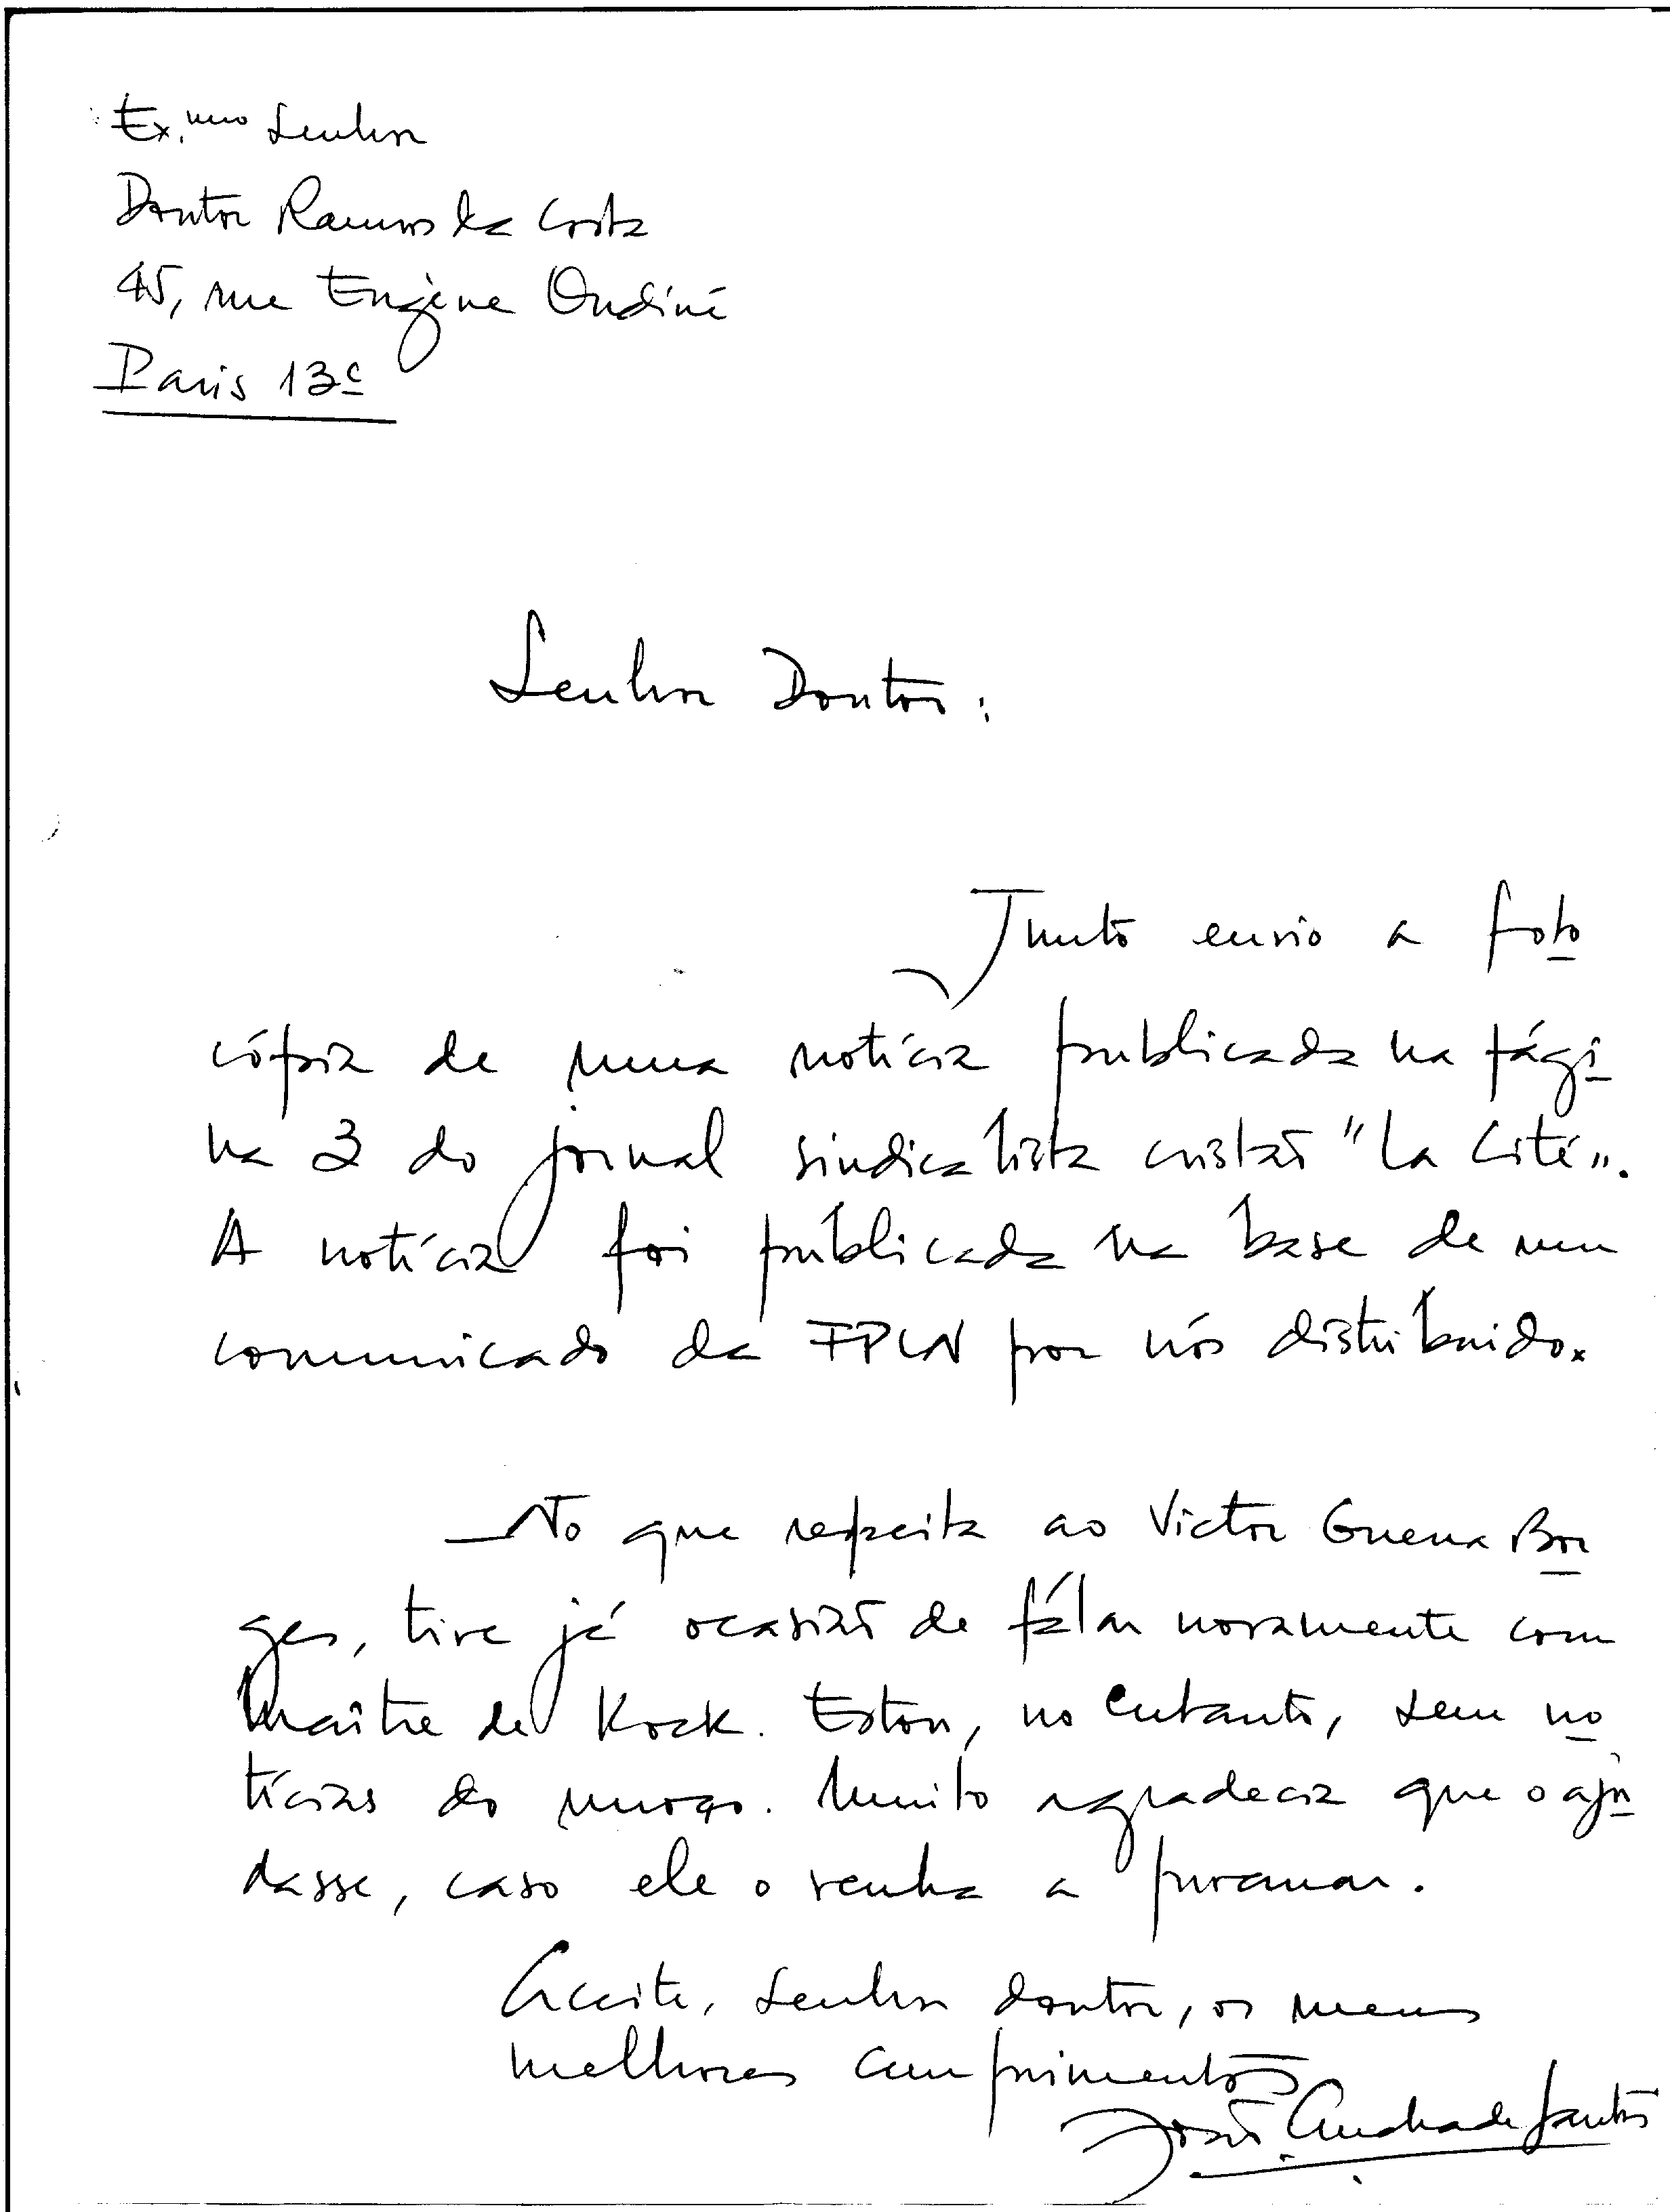 Ex.mo Senhor
Doutor Ramos da Costa
45, rue Eugène Oudiné
Paris 13e
Senhor Doutor:
Junto envio a foto
cópia de uma notícia publicada na pági
na 3 do jornal sindicalista cristão "La Cité".
A notícia foi publicada na base de um
comunicado da FPLN por nós distribuido.
No que respeita ao Victor Guerra Bor
ges, tive já ocasião de falar novamente com
Maître de Kock. Estou, no entanto, sem no
tícias do moço. Muito agradecia que o aju
dasse, caso ele o venha a procurar.
Aceite, Senhor doutor, os meus
melhores cumprimentos
João Andrade Santos